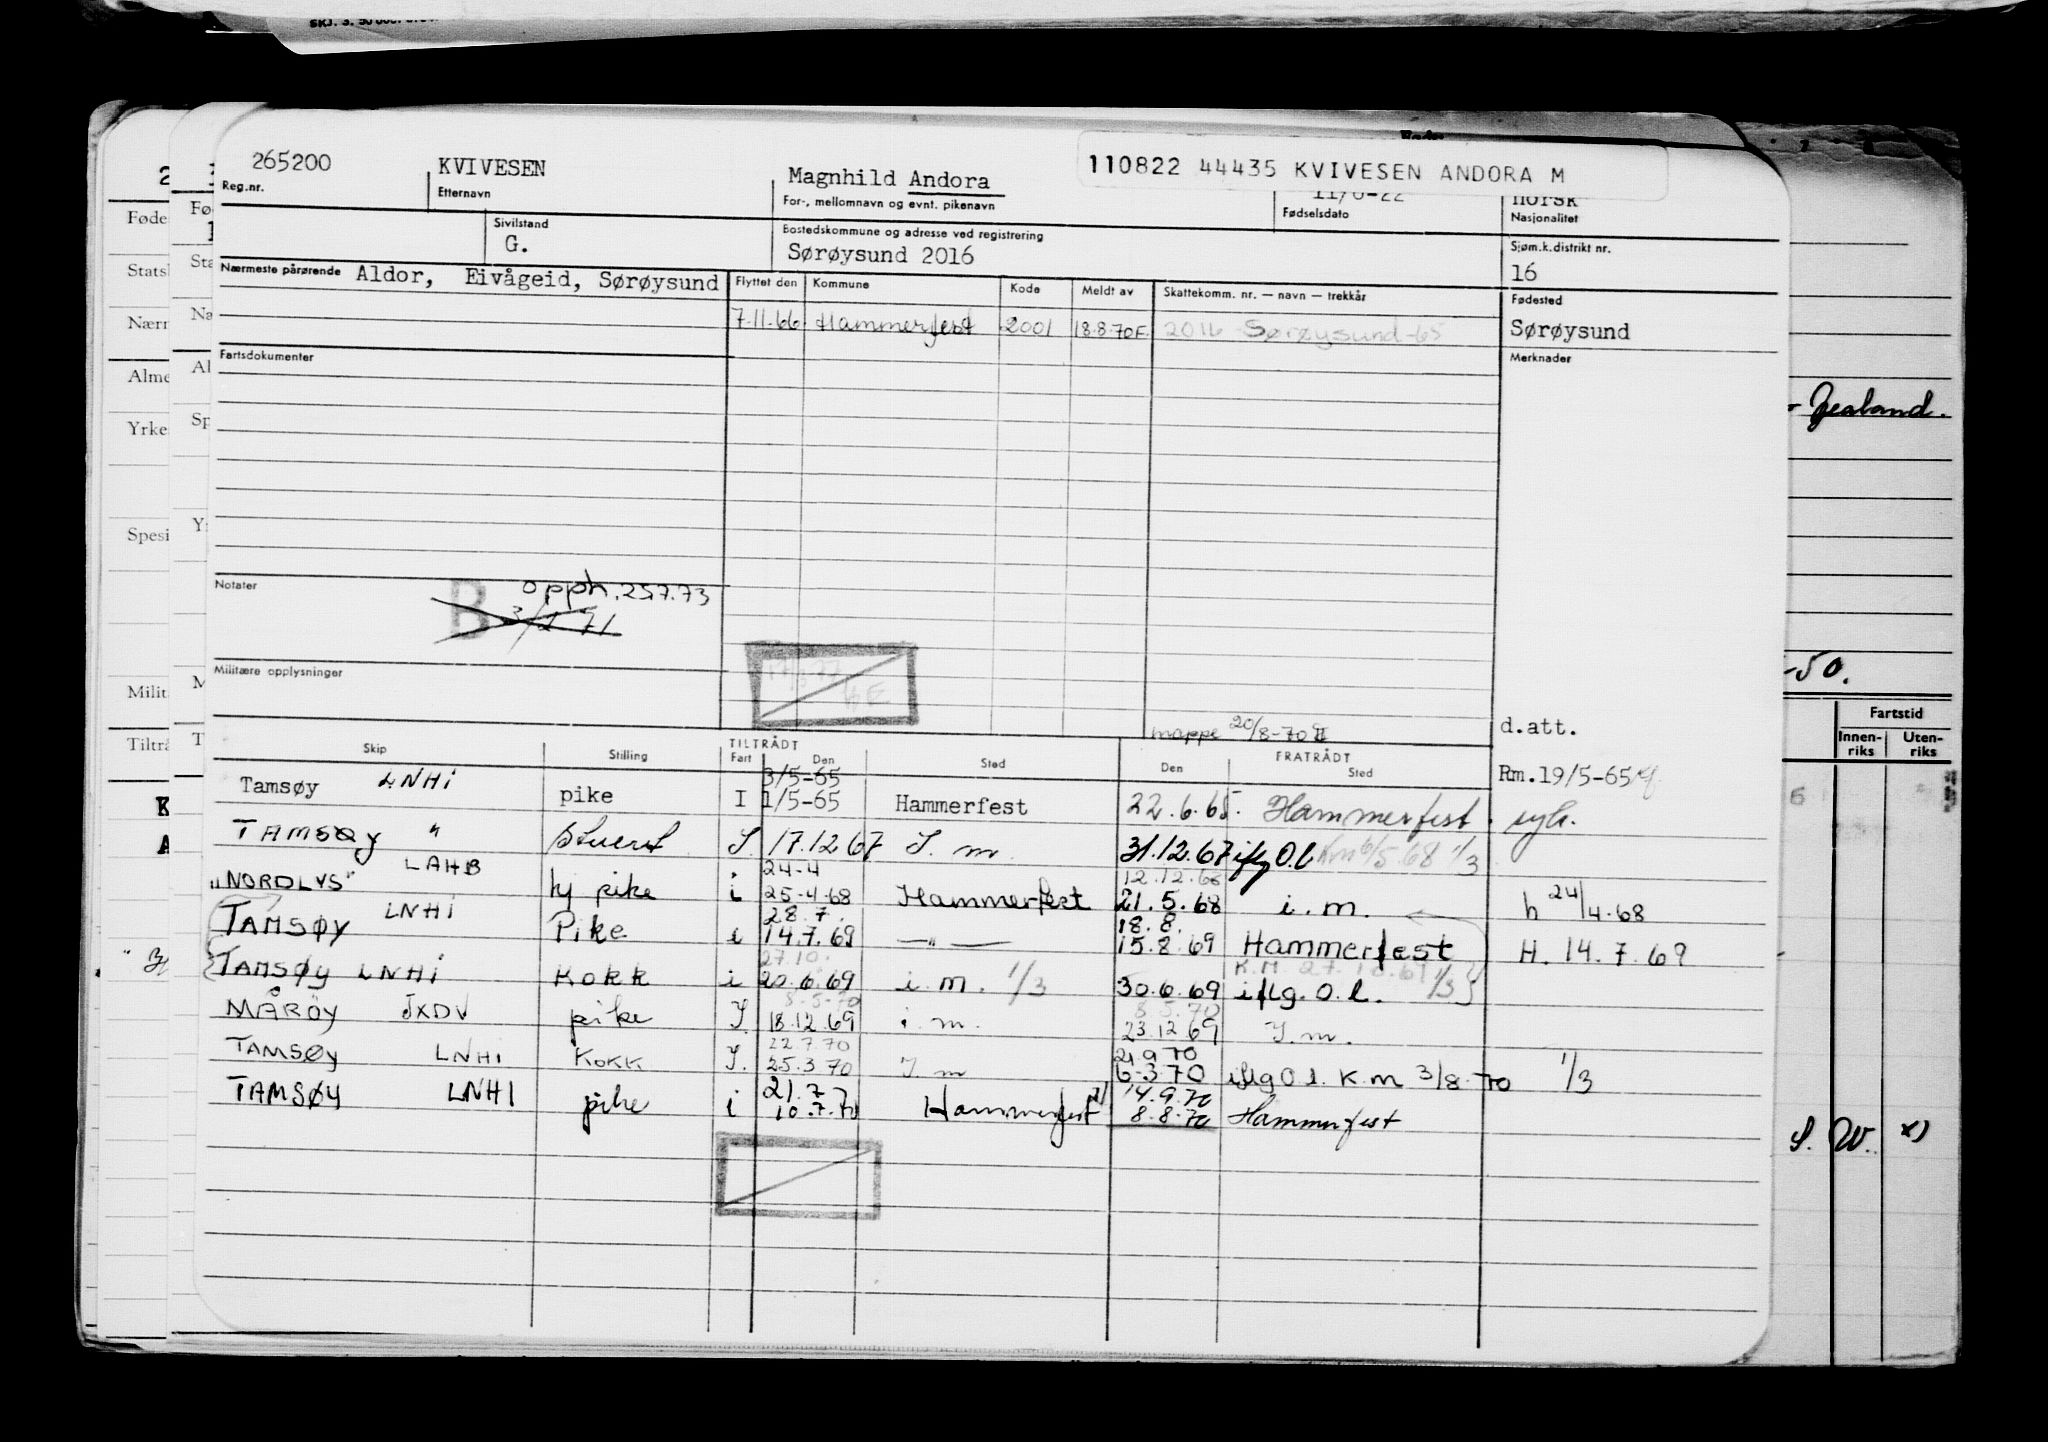 265200 KVIVESEN Magnhild Andora 110822 44435 KVIVESEN ANDORA M
Reg.nr. Etternavn For-, mellomnavn og evnt. pikenavn Fødselsdato Nasjonalitet
norsk
Sivilstand Bostedskommune og adresse ved registrering Sjøm.k.distrikt nr.
G. Sørøysund 2016 16
Nærmeste pårørende Aldor, Eivågeid, Sørøysund Flyttet den Kommune Kode Meldt av Skattekomm. nr. — navn — trekkår Fødested
7.11.66 Hammerfest 2001 18.8.70F. 2016 Sørøysund -65 Sørøysund
Fartsdokumenter Merknader
Zealand.
Notater opph. 257.73
B 3/2 71
-50.
Militære opplysninger
mappe 20/8-70 d.att.
Skip Stilling TILTRÅDT Fart Den Sted Den FRATRÅDT Sted Rm.19/5-65
Fartstid
Innen-riks Uten-riks
3/5-65
Tamsøy LNHI pike I 1/5-65 Hammerfest 22.6.65. Hammerfest.
TAMSØY " Stuert I. 17.12 67 I. m 31.12.67 iflg O.l Km 6/5.68 1/3
24-4 12.12.68
"NORDLYS" LAHB hj pike i 25-4-68 Hammerfest 21.5.68 i.m. h 24/4.68
28.7. 18.8.
TAMSØY LNHI Pike i 14.7.69 —"— 15.8.69 Hammerfest H. 14.7.69
27.10. K.M. 27.10.69 1/3
TAMSØY LNHI Kokk i 20.6.69 i.m. 1/3 30.6.69 iflg. O.l.
8-5-70 8.5.70
MÅRØY JXDV pike I. 18.12.69 i.m. 23.12 69 I.m.
22.7.70
TAMSØY LNHI KOKK I. 25.3 70 I.m 6-3 70 iflg O l. K m 3/8-70 1/3
21.7 14.9.70
TAMSØY LNHI pike i 10.7.70 Hammerfest 8.8.70 Hammerfest
S. W. x)